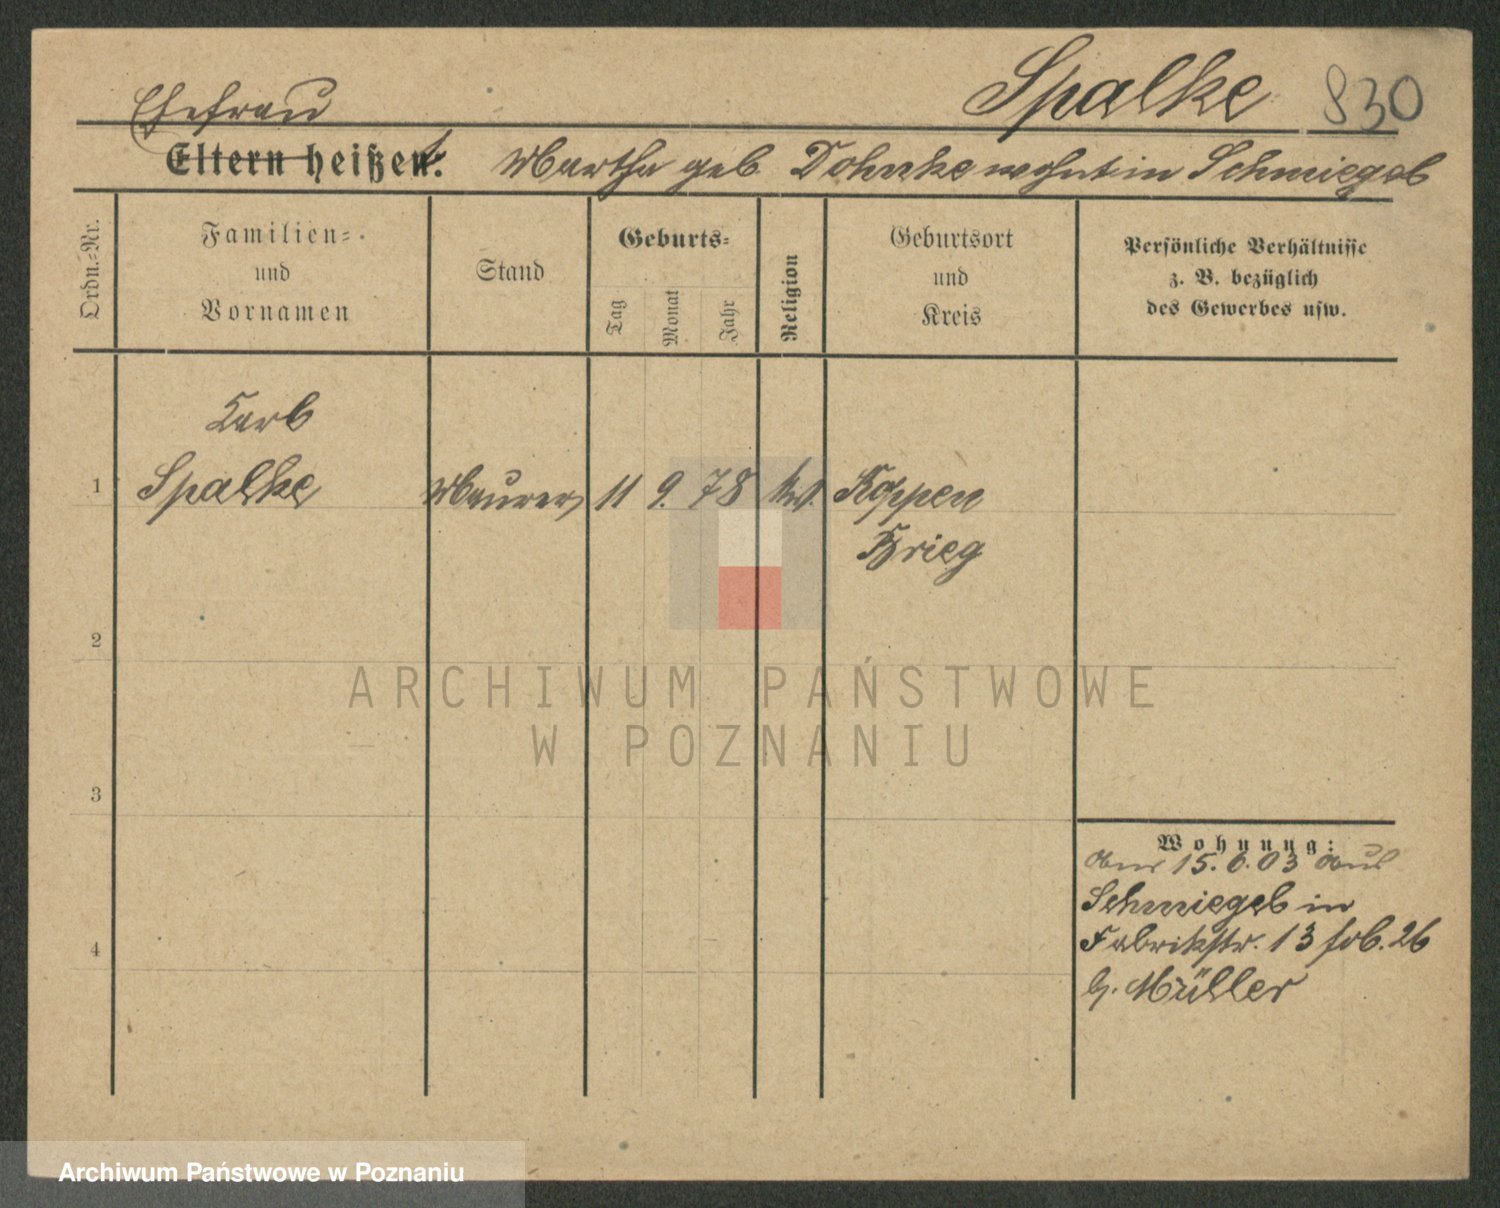 Spalke 830
Ehefrau
Eltern heißen: Martha geb. Dohnke wohnt in Schmiegel
Ordn.-Nr.
Familien-
und
Vornamen
Stand
Geburts-
Tag
Monat
Jahr
Religion
Geburtsort
und
Kreis
Persönliche Verhältnisse
z. B. bezüglich
des Gewerbes usw.
Karl
1 Spalke Maurer 11 9. 78 Koppen
Brieg
2
3
4
Wohnung:
15. 6. 03 aus
Schmiegel in
Fabrikstr. 13 26
b. Müller
ARCHIWUM PAŃSTWOWE
W POZNANIU
Archiwum Państwowe w Poznaniu